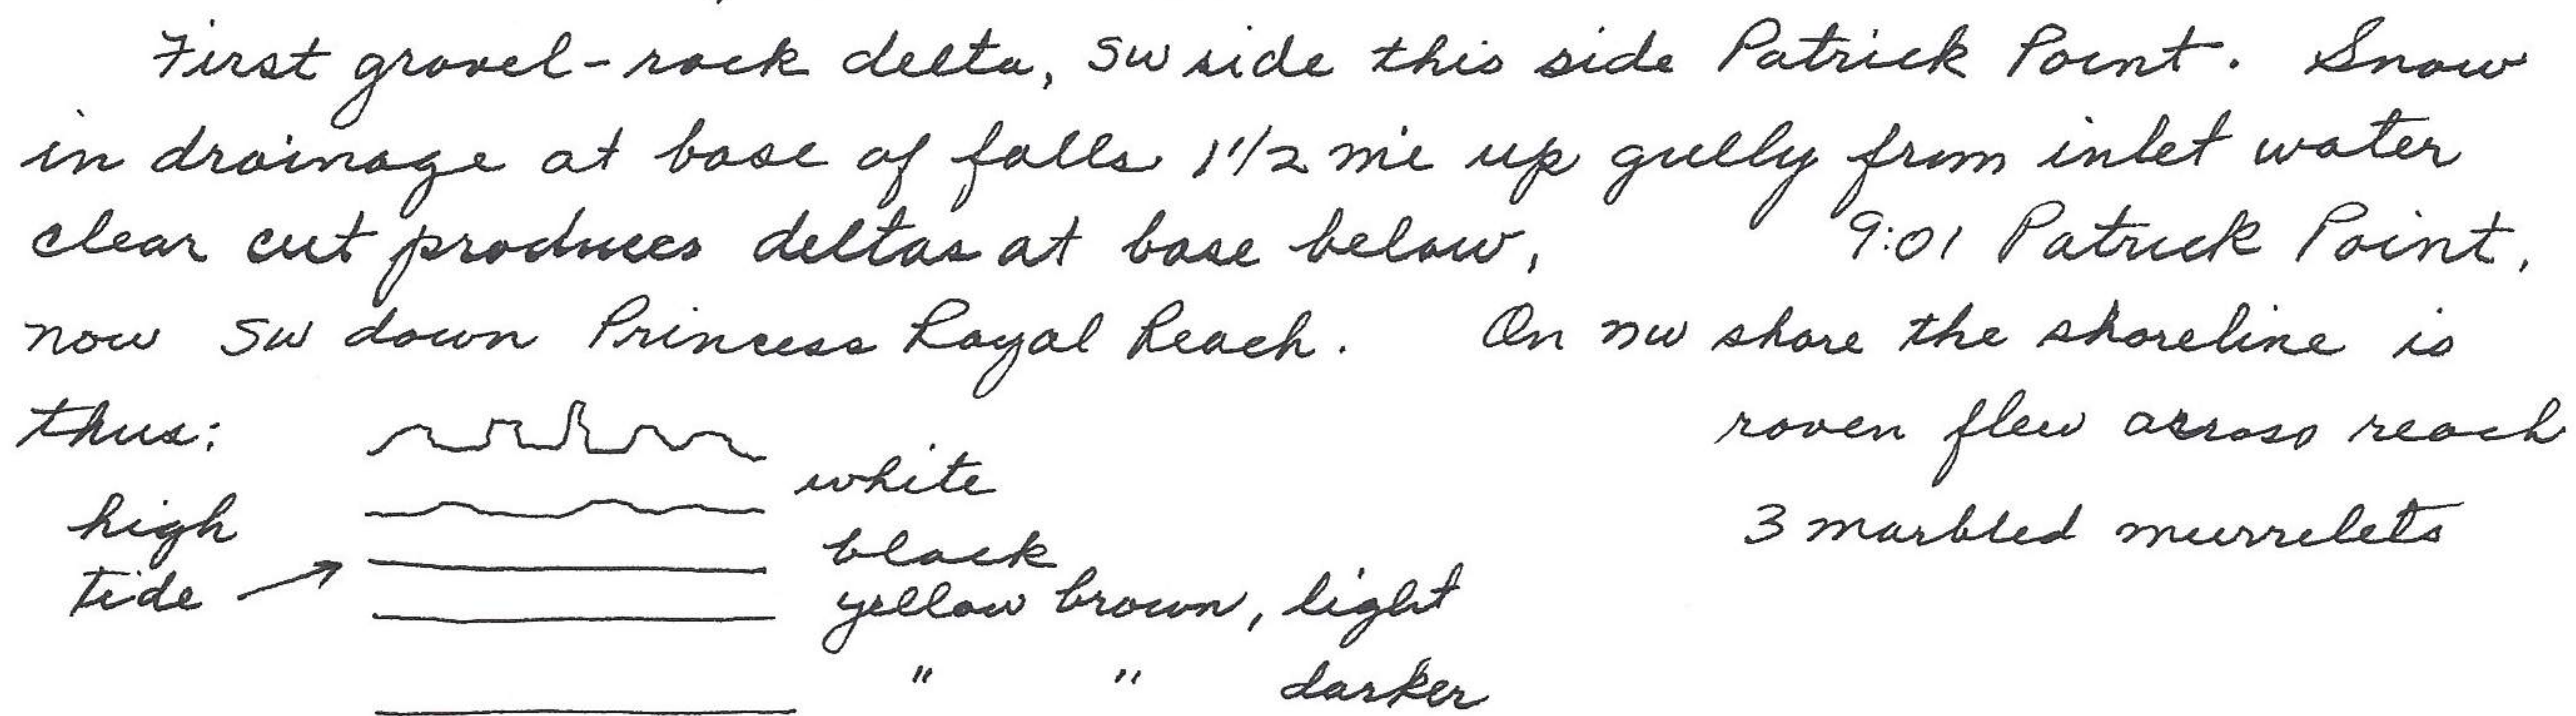 First gravel-rock delta, SW side this side Patrick Point. Snow
in drainage at base of falls 1 1/2 mi up gully from inlet water
clear cut produces deltas at base below, 9:01 Patrick Point,
now SW down Princess Royal Reach. On NW shore the shoreline is
thus: raven flew across reach
white
high 3 marbled murrelets
black
tide → yellow brown, light
" " darker